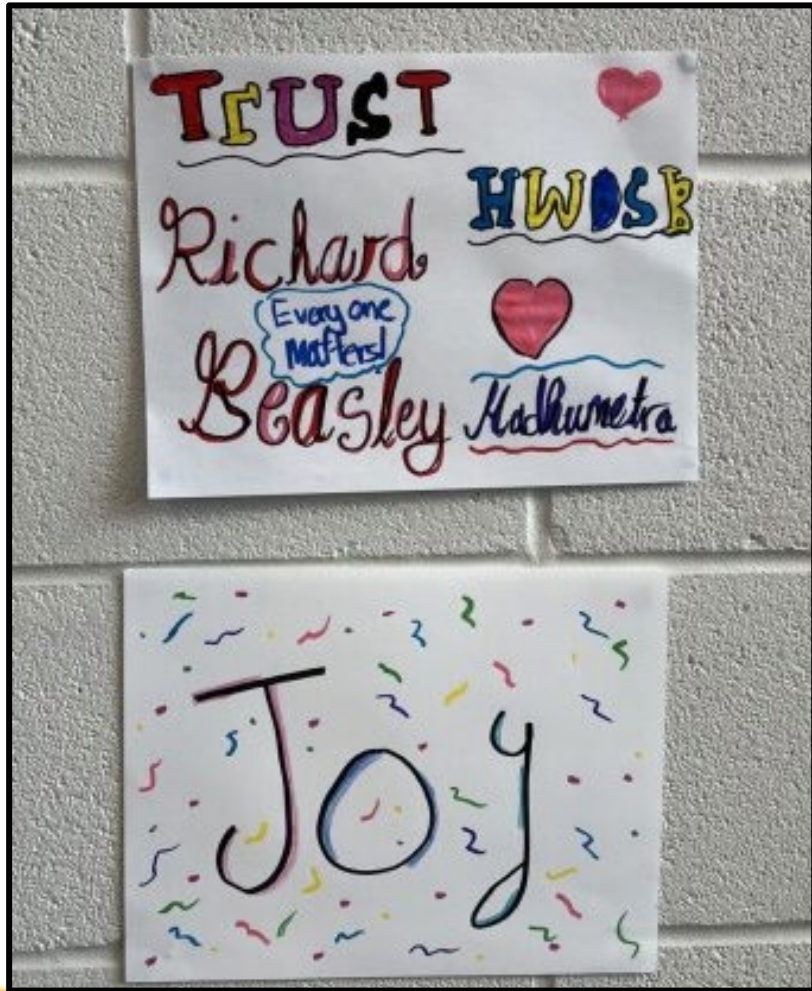 TrUST
HWDSB
Richard
Everyone
Matters!
Beasley
Madhumetra
Joy